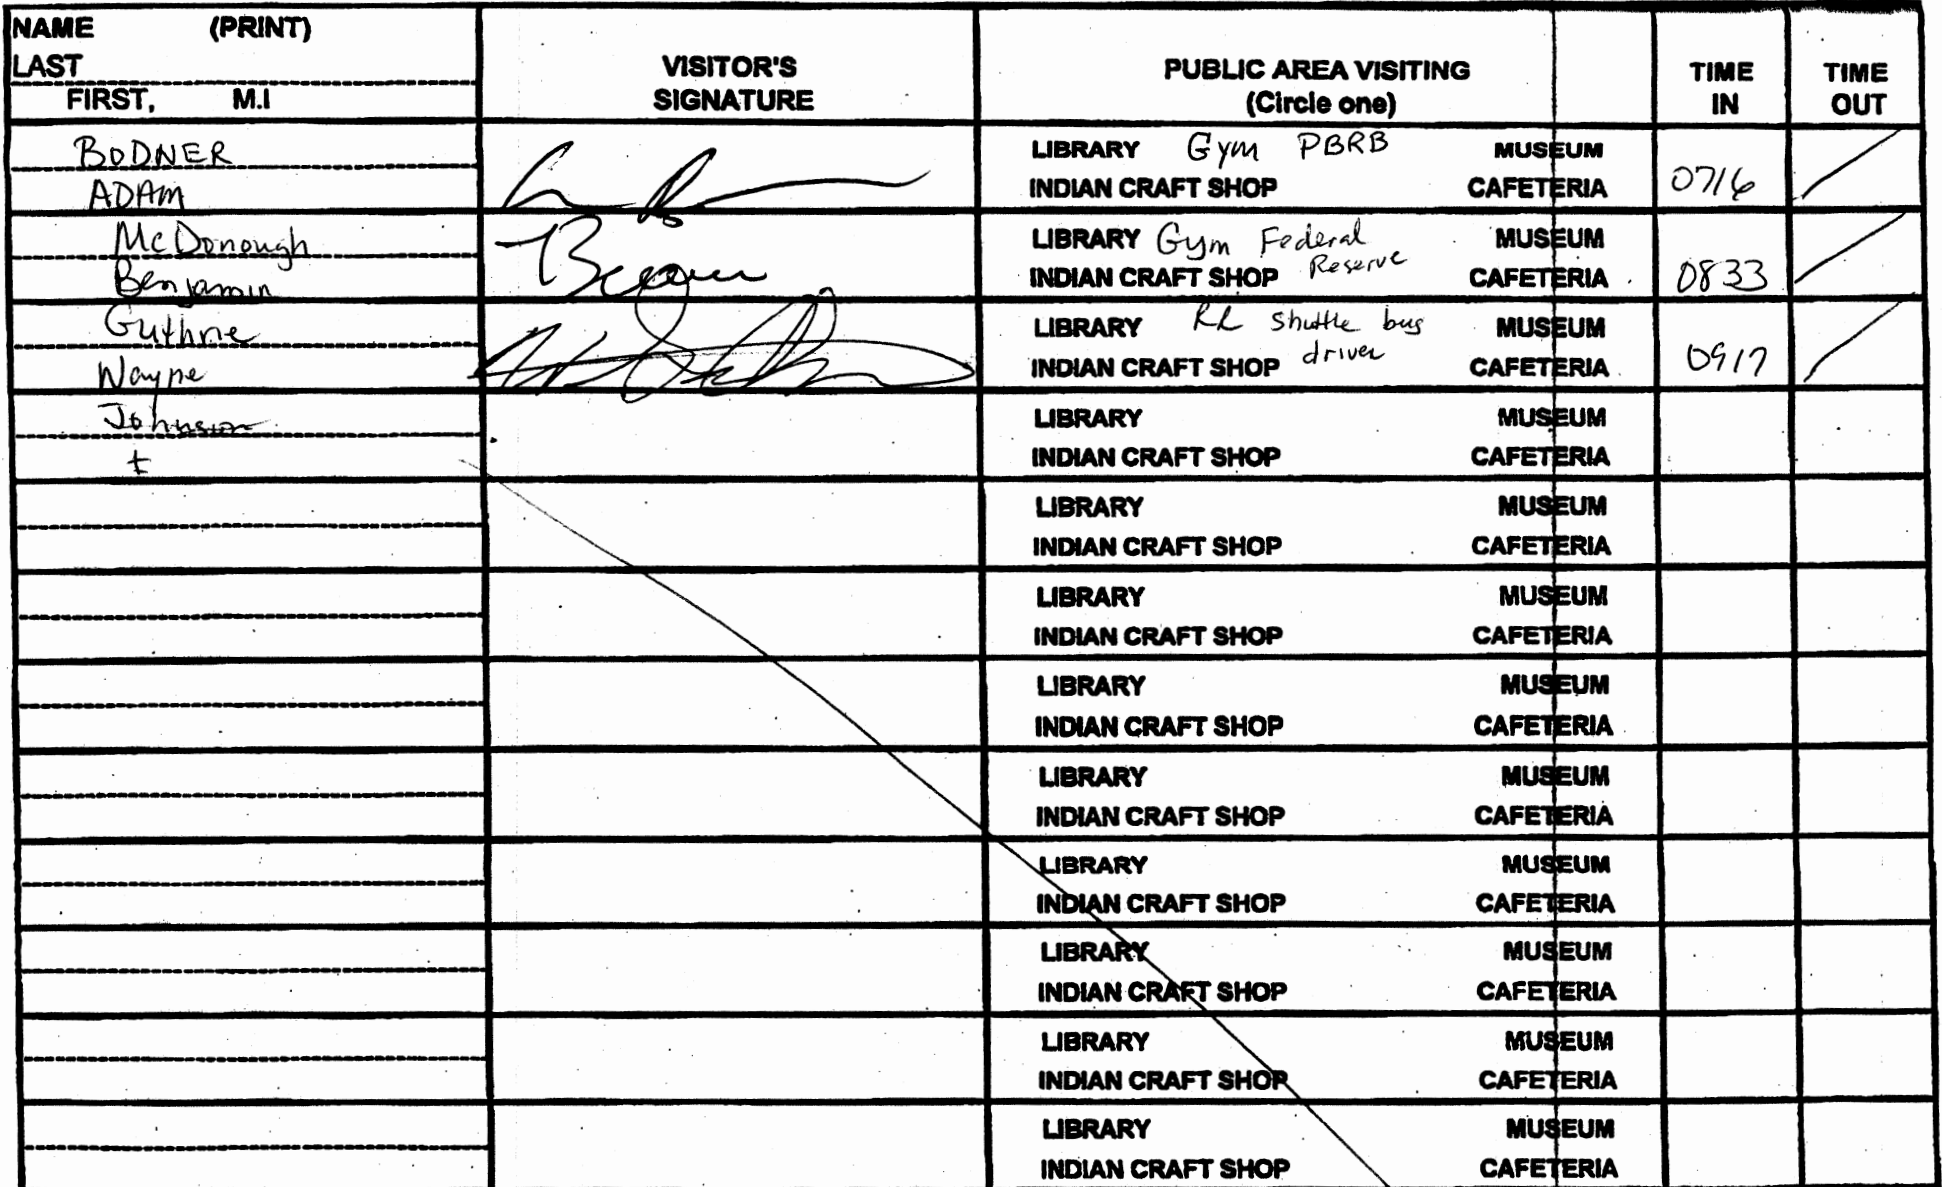 NAME (PRINT)
LAST
FIRST, M.I
VISITOR'S
SIGNATURE
PUBLIC AREA VISITING
(Circle one)
TIME
IN
TIME
OUT
BODNER
ADAM
LIBRARY Gym PBRB MUSEUM
INDIAN CRAFT SHOP CAFETERIA
0716
McDonough
Benjamin
LIBRARY Gym Federal MUSEUM
Reserve
INDIAN CRAFT SHOP CAFETERIA
0833
Guthrie
Wayne
LIBRARY RR shuttle bus MUSEUM
driver
INDIAN CRAFT SHOP CAFETERIA
0917
Johnson
LIBRARY MUSEUM
INDIAN CRAFT SHOP CAFETERIA
LIBRARY MUSEUM
INDIAN CRAFT SHOP CAFETERIA
LIBRARY MUSEUM
INDIAN CRAFT SHOP CAFETERIA
LIBRARY MUSEUM
INDIAN CRAFT SHOP CAFETERIA
LIBRARY MUSEUM
INDIAN CRAFT SHOP CAFETERIA
LIBRARY MUSEUM
INDIAN CRAFT SHOP CAFETERIA
LIBRARY MUSEUM
INDIAN CRAFT SHOP CAFETERIA
LIBRARY MUSEUM
INDIAN CRAFT SHOP CAFETERIA
LIBRARY MUSEUM
INDIAN CRAFT SHOP CAFETERIA